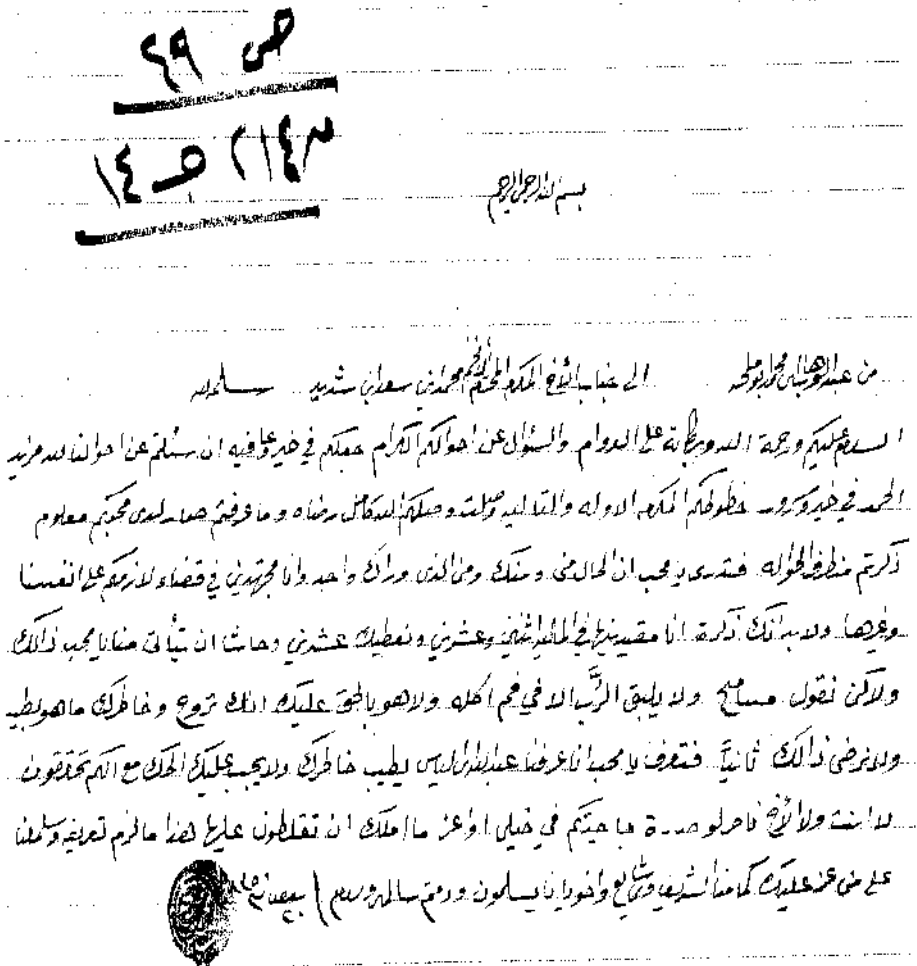 ص ٢٩
س ٢١٤ هـ ١٤
بسم الله الرحمن الرحيم
من عبدالوهاب بن محمد ابو ملحه الى جناب الأخ المكرم المحترم الأفخم محمد بن سعد بن شديد سلمه الله
السلام عليكم ورحمة الله وبركاته على الدوام والسئوال عن احوالكم الكرام جعلكم في خير وعافيه ان سئلتم عن احوالنا لله مزيد
الحمد في خير وسرور خطوطكم المكرمه الاوله والتاليه وصلت وصلكم الله لكامل رضاه وما عرفتم صار لدى محبكم معلوم
ذكرتم منطرف الحواله فتدرى يا محب ان الحال منى ومنك ومن الذى وراك واحد وانا مجتهدين في قضاء لازمكم على انفسنا
وغيرها ولابد انك ذكرة انا مقيدينها في الماليه اثنين وعشرين ونعطيك عشرين وحاشا ان يتأتى منا يا محب ذالك
ولاكن نقول مسامح ولا يلبق الرُّب الا في فم اكله ولاهو بالحق عليك انك تروح وخاطرك ماهو بطيب
ولانرضى ذالك ثانياً فتعرف يا محب انا عرفنا عبدالله يطيب خاطرك ولايجب عليك الحك مع انكم تحققون
لا انت ولا الأخ ناصر لو صدرة حاجتكم في خيلى او اعز ما املك ان تغلطون عليها هذا مالزم تعريفه وسلامنا
على من عز عليك كما منا الشريف وشايع واخويانا يسلمون ودمتم سالمين والسلام